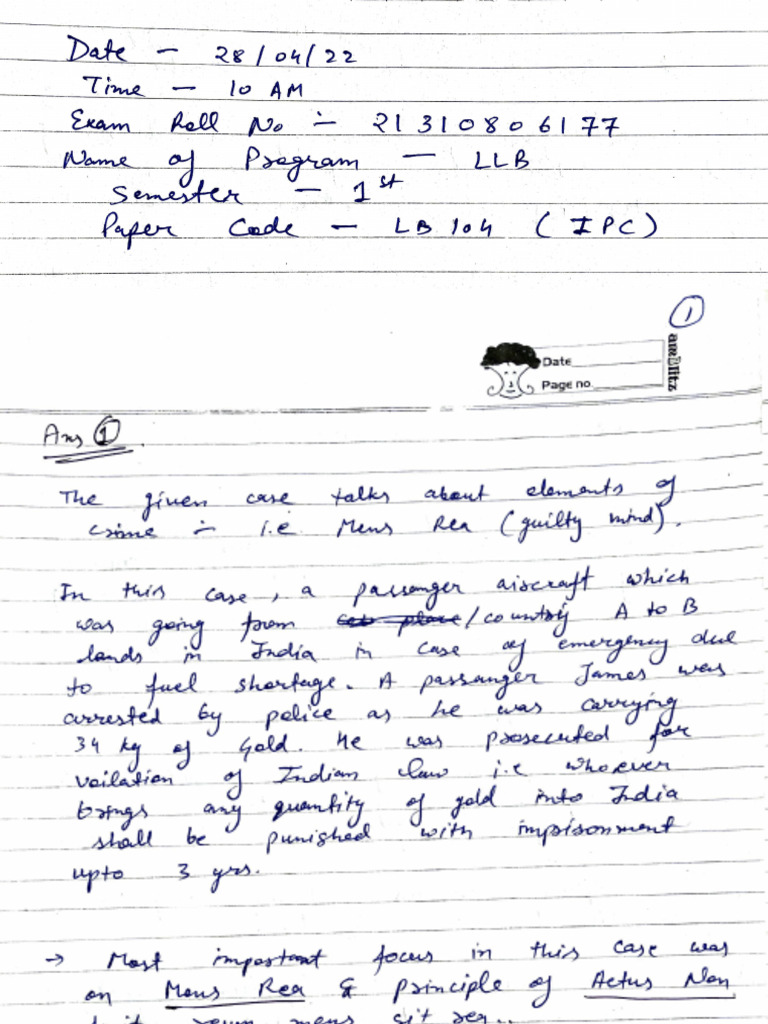 Date - 28/04/22
Time - 10 AM
Exam Roll No :- 21310806177
Name of Program - LLB
Semester - 1st
Paper Code - LB 104 (IPC)
1
Date
Page no.
Ans 1.
The given case talks about elements of
crime :- i.e Mens Rea (guilty mind).
In this case, a passanger aircraft which
was going from /country A to B
lands in India in case of emergency due
to fuel shortage. A passanger James was
arrested by police as he was carrying
34 kg of Gold. He was prosecuted for
voilation of Indian law i.e whoever
brings any quantity of gold into India
shall be punished with imprisonment
upto 3 yrs.
→ Most important focus in this case was
on Mens Rea & principle of Actus Non